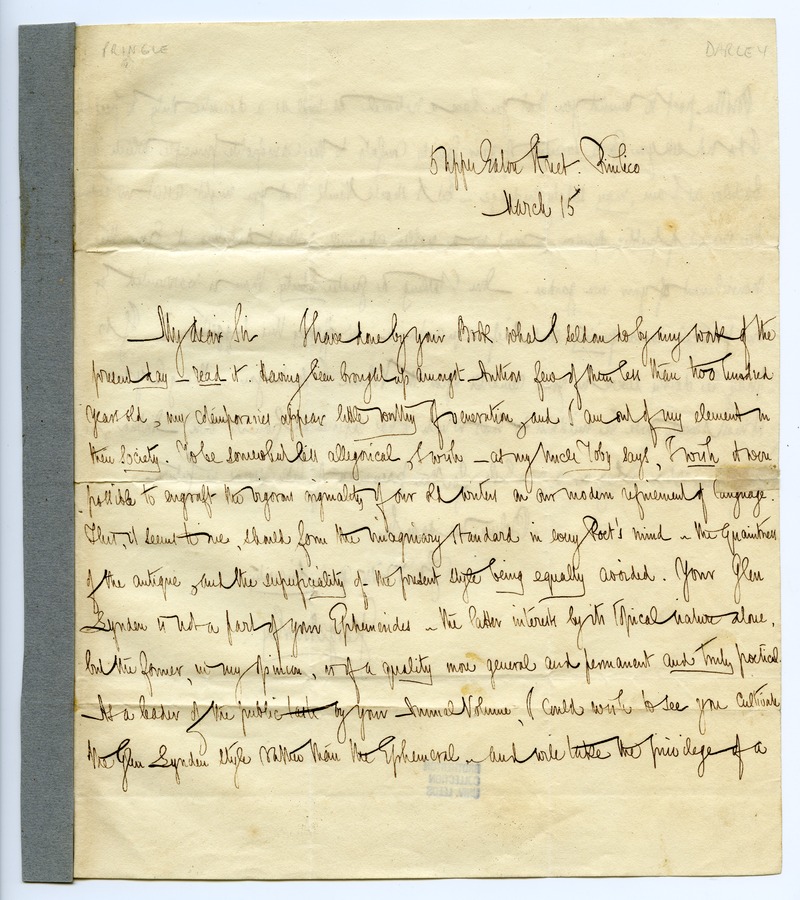 PRINGLE
DARLEY
5 Upper Eaton Street. Pimlico
March 15
My dear Sir I have done by your Book what I seldom do by any work of the
present day – read it. Having been brought up amongst Authors few of them less than two hundred
years old, my cotemporaries appear little worthy of veneration, and I am out of my element in
their Society. To be somewhat less allegorical, I wish – as my Uncle Toby says, I wish it were
possible to engraft the vigorous originality of our old writers on our modern refinement of language.
This, it seems to me, should form the imaginary standard in every Poet's mind – the Quaintness
of the antique, and the superficiality of the present style being equally avoided. Your Glen
Lynden is not a part of your Ephemerides – the latter interests by its topical nature alone,
but the former, in my opinion, is of a quality more general and permanent and truly poetical.
As a leader of the public taste by your Annual Volume, I could wish to see you cultivate
the Glen Lynden style rather than the Ephemeral – and will take the privilege of a